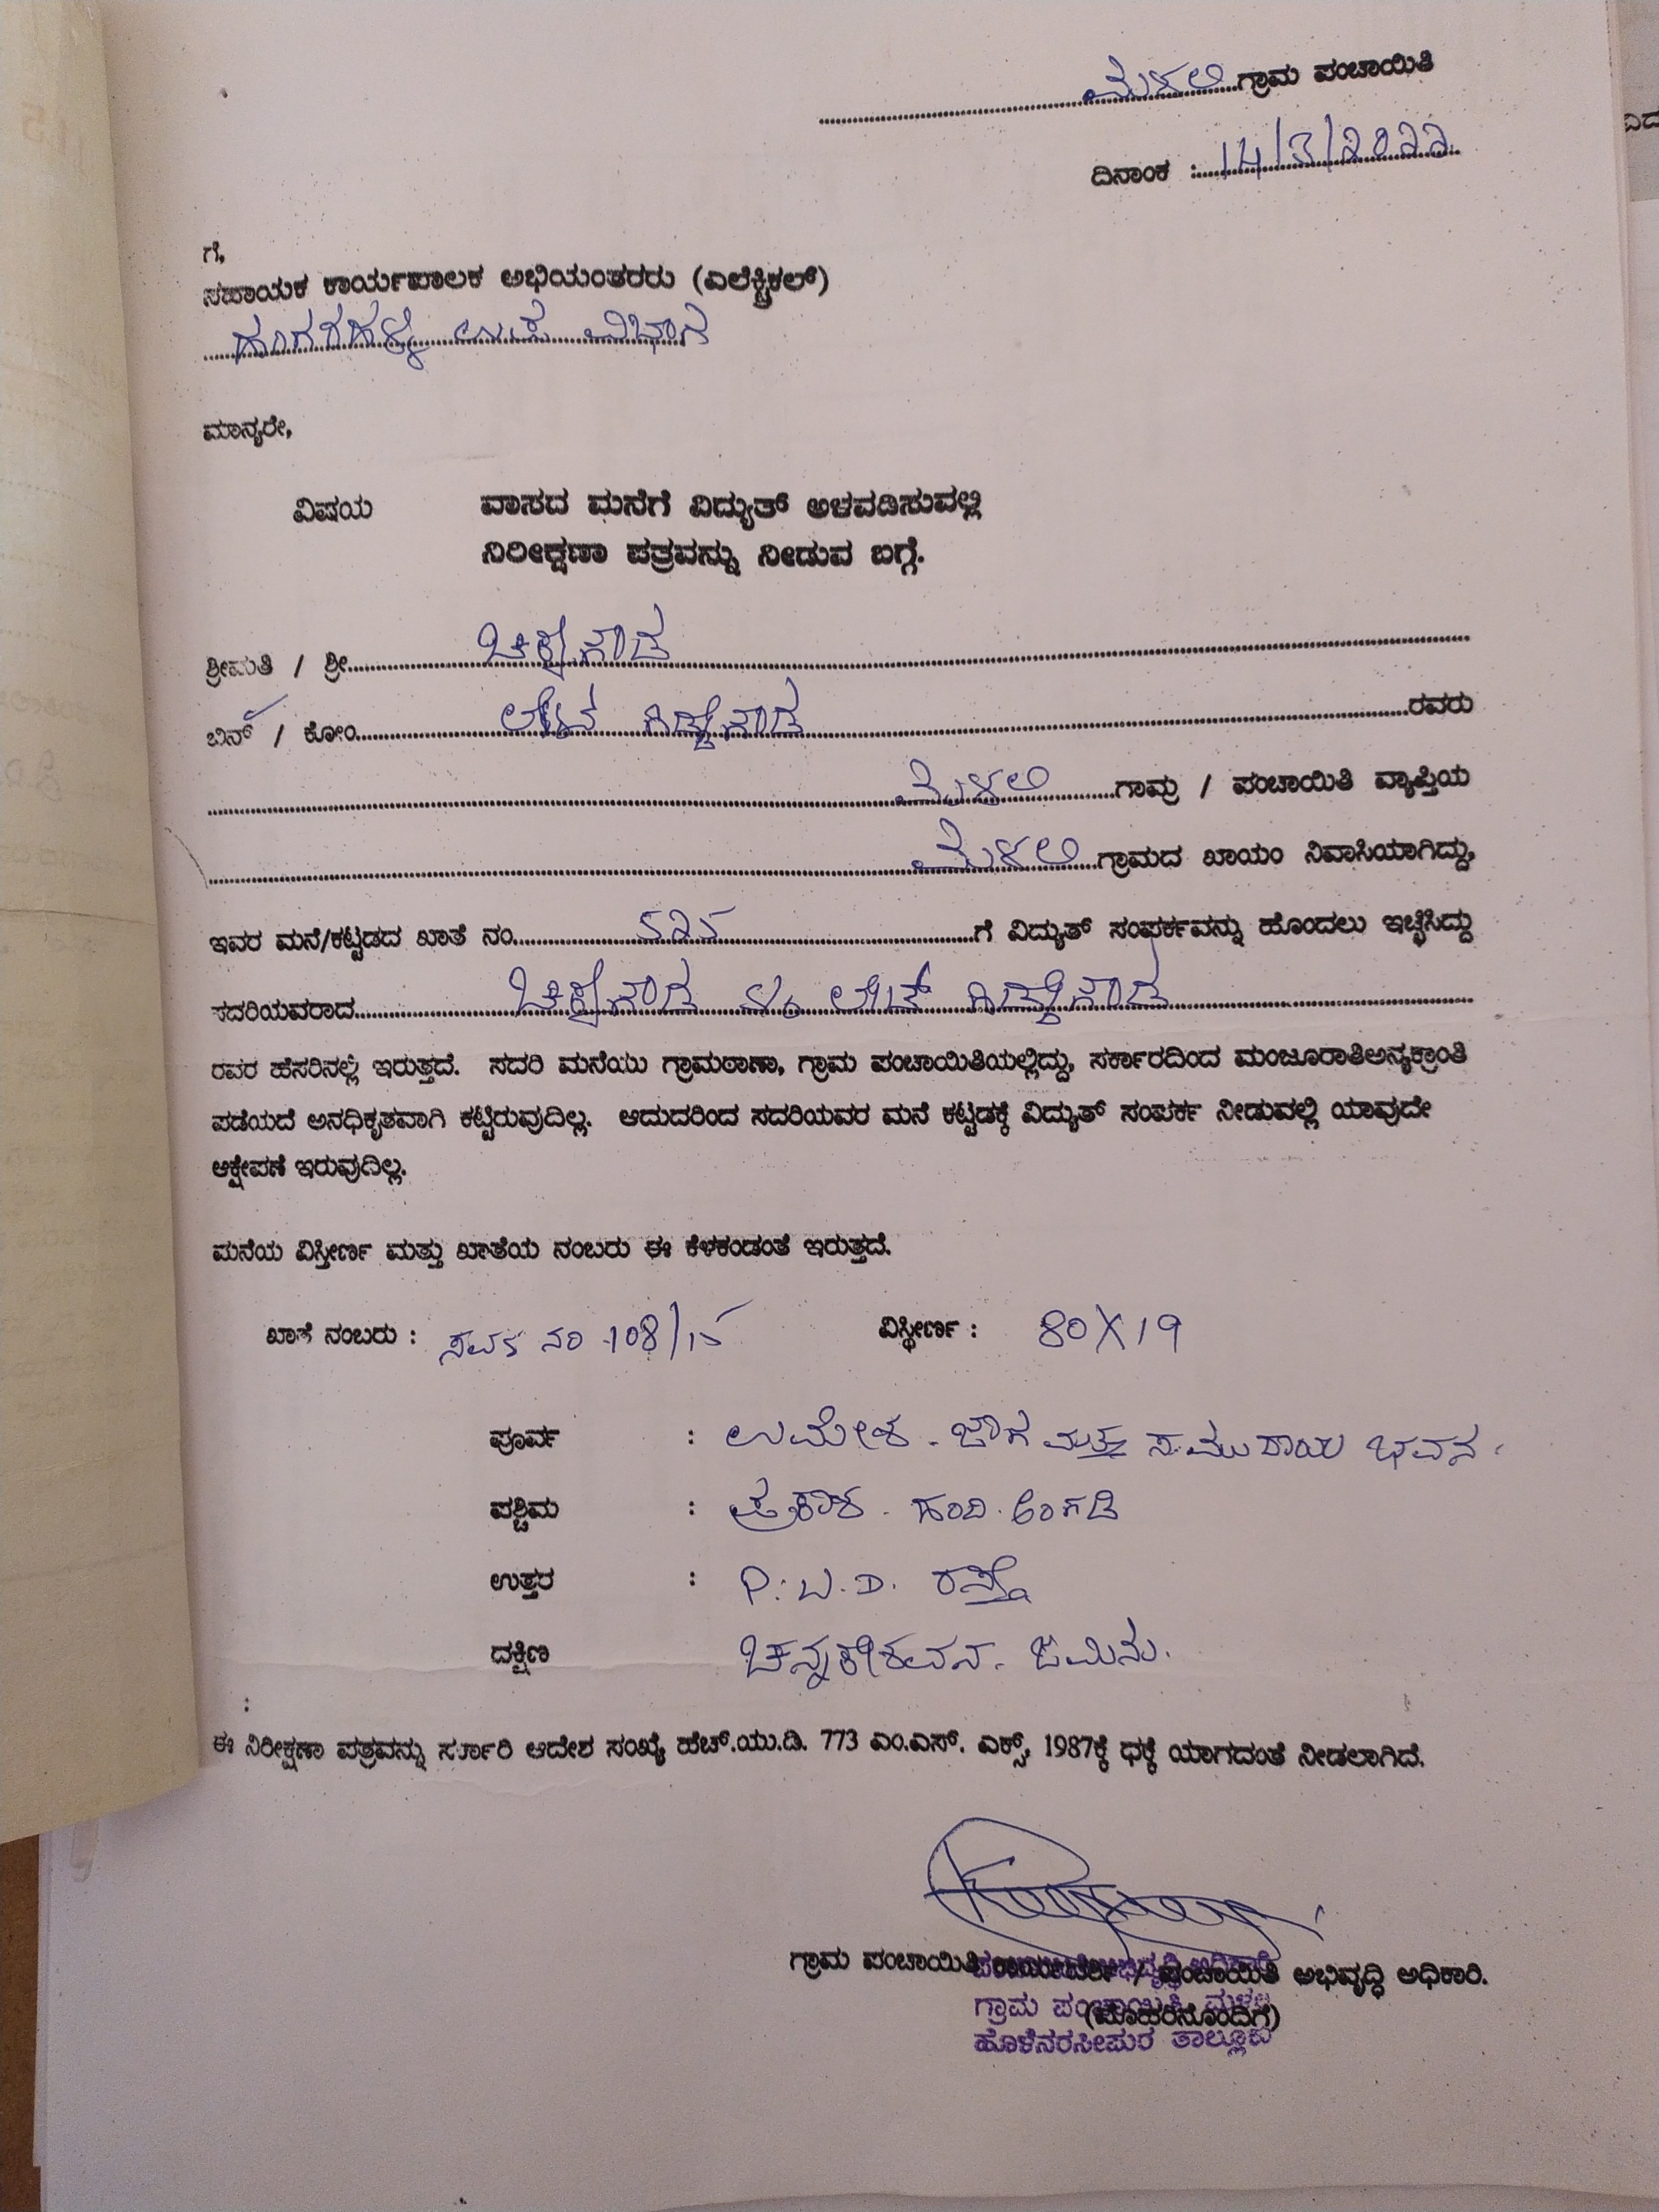 ಮೆಳಲಿ ಗ್ರಾಮ ಪಂಚಾಯಿತಿ
ದಿನಾಂಕ : 14/3/2022
ಗೆ,
ಸಹಾಯಕ ಕಾರ್ಯಪಾಲಕ ಅಭಿಯಂತರರು (ಎಲೆಕ್ಟ್ರಿಕಲ್)
ಉಪ ವಿಭಾಗ
ಮಾನ್ಯರೇ,
ವಿಷಯ ವಾಸದ ಮನೆಗೆ ವಿದ್ಯುತ್ ಅಳವಡಿಸುವಲ್ಲಿ
ನಿರೀಕ್ಷಣಾ ಪತ್ರವನ್ನು ನೀಡುವ ಬಗ್ಗೆ.
ಶ್ರೀಮತಿ / ಶ್ರೀ
ಬಿನ್ / ಕೋಂ ರವರು
ಮೆಳಲಿ ಗಾಮ್ರ / ಪಂಚಾಯಿತಿ ವ್ಯಾಪ್ತಿಯ
ಮೆಳಲಿ ಗ್ರಾಮದ ಖಾಯಂ ನಿವಾಸಿಯಾಗಿದ್ದು,
ಇವರ ಮನೆ/ಕಟ್ಟಡದ ಖಾತೆ ನಂ ಗೆ ವಿದ್ಯುತ್ ಸಂಪರ್ಕವನ್ನು ಹೊಂದಲು ಇಚ್ಛಿಸಿದ್ದು
ಸದರಿಯವರಾದ
ರವರ ಹೆಸರಿನಲ್ಲಿ ಇರುತ್ತದೆ. ಸದರಿ ಮನೆಯು ಗ್ರಾಮಠಾಣಾ, ಗ್ರಾಮ ಪಂಚಾಯಿತಿಯಲ್ಲಿದ್ದು, ಸರ್ಕಾರದಿಂದ ಮಂಜೂರಾತಿಅನ್ಯಕ್ರಾಂತಿ
ಪಡೆಯದೆ ಅನಧಿಕೃತವಾಗಿ ಕಟ್ಟಿರುವುದಿಲ್ಲ. ಆದುದರಿಂದ ಸದರಿಯವರ ಮನೆ ಕಟ್ಟಡಕ್ಕೆ ವಿದ್ಯುತ್ ಸಂಪರ್ಕ ನೀಡುವಲ್ಲಿ ಯಾವುದೇ
ಆಕ್ಷೇಪಣೆ ಇರುವುದಿಲ್ಲ.
ಮನೆಯ ವಿಸ್ತೀರ್ಣ ಮತ್ತು ಖಾತೆಯ ನಂಬರು ಈ ಕೆಳಕಂಡಂತೆ ಇರುತ್ತದೆ.
ಖಾತೆ ನಂಬರು : ನಂ 108/15 ವಿಸ್ತೀರ್ಣ : 80X19
ಪೂರ್ವ : ಉಮೇಶ. ಜಾಗ ಮತ್ತು ಸಮುದಾಯ ಭವನ.
ಪಶ್ಚಿಮ : ಪ್ರಕಾಶ. ಹಂದಿ. ಅಂಗಡಿ
ಉತ್ತರ : P.W.D. ರಸ್ತೆ
ದಕ್ಷಿಣ ಚನ್ನಕೇಶವನ. ಜಮಿನು.
:
ಈ ನಿರೀಕ್ಷಣಾ ಪತ್ರವನ್ನು ಸರ್ಕಾರಿ ಆದೇಶ ಸಂಖ್ಯೆ ಹೆಚ್.ಯು.ಡಿ. 773 ಎಂ.ಎಸ್. ಎಕ್ಸ್, 1987ಕ್ಕೆ ಧಕ್ಕೆ ಯಾಗದಂತೆ ನೀಡಲಾಗಿದೆ.
ಗ್ರಾಮ ಪಂಚಾಯಿತಿ ಕಾರ್ಯದರ್ಶಿ / ಪಂಚಾಯಿತಿ ಅಭಿವೃದ್ಧಿ ಅಧಿಕಾರಿ.
ಗ್ರಾಮ ಪಂಚಾಯಿತಿ
(ಮೊಹರಿನೊಂದಿಗೆ)
ಹೊಳೆನರಸೀಪುರ ತಾಲ್ಲೂಕು